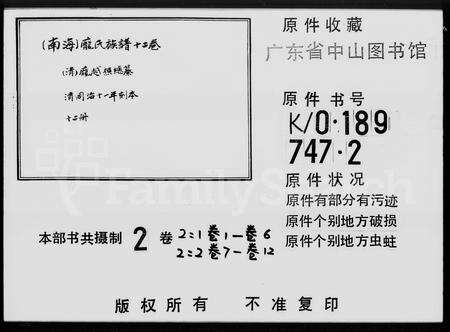 (南海)龐氏族譜十二卷
(清)龐尨棋總纂
清同治十一年刻本
十二册
原件收藏
广东省中山图书馆
原件书号
K/0·189
747·2
原件状况
原件有部分有污迹
原件个别地方破损
原件个别地方虫蛀
本部书共摄制 2 卷 2=1 卷1—卷6
2=2 卷7—卷12
版权所有 不准复印
FamilySearch